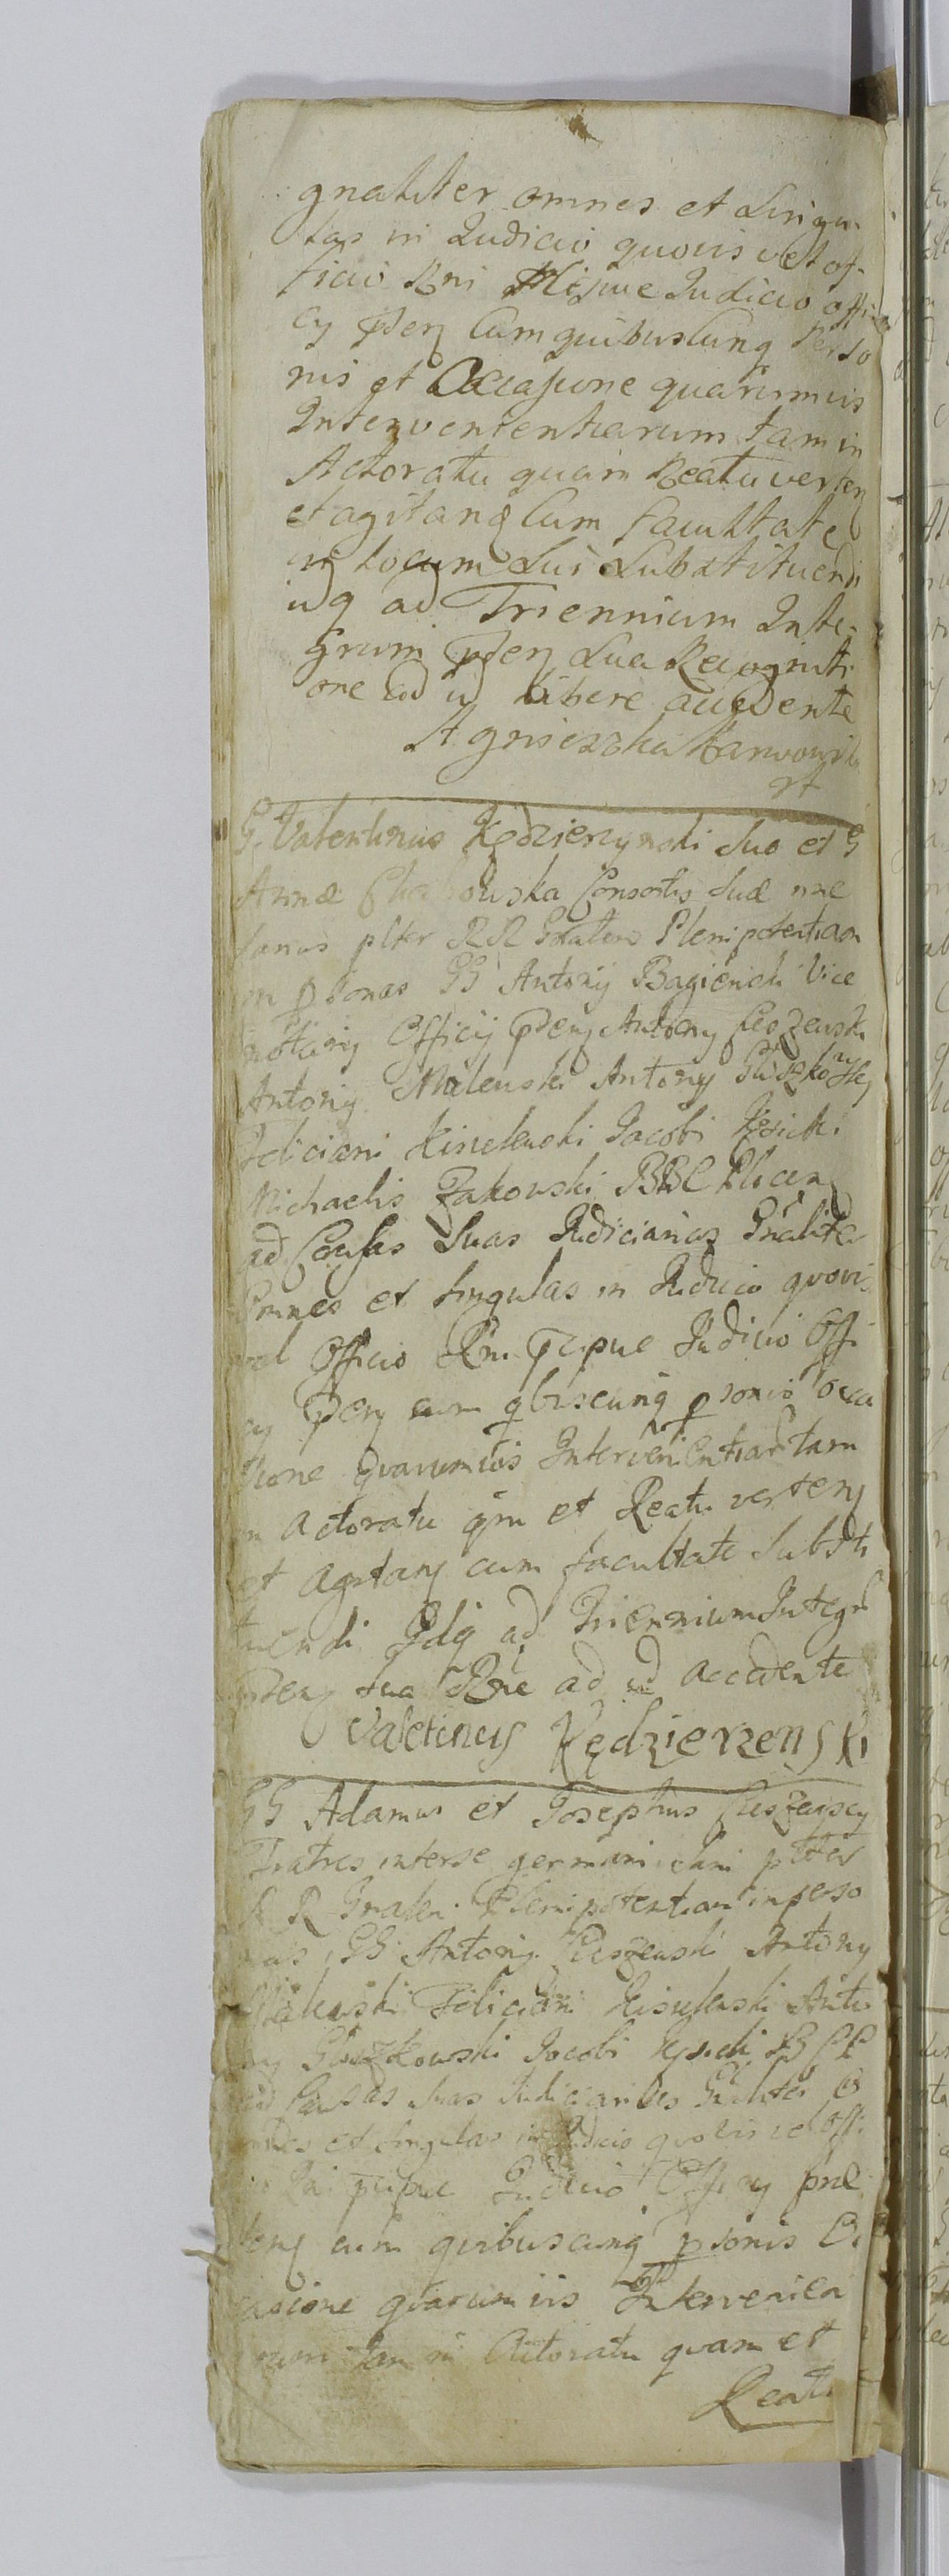 gnaliter omnes et Singu
las in Judicio quovis vel of-
ficio Rni Judicio offi
cy pден Cum quibuscunq Perso
nis et Occasione quarumvis
Intervenientiarum tam in
Actoratu quam Reatu verten
et agitand Cum facultate
in locum Sui Substituendi
idq ad Triennium Inte-
grum pden Sua Recogniti
one ad id libere accedente
Agnieszka Karwowska
G Valentinus Kędzierzynski Suo et G
Annæ Consortis Suæ nne
Sanus plter RR Gnalem Plenipotentiam
in psonas GG Antonij Bagienski Vice
notarij Officij pden Antony Cieszewski
Antonij Milewski Antony Głuszkowski
Feliciani Kisielewski Jacobi Kęsicki
Michaelis Zakowski
ad Causas Suas Judiciarias Gnaliter
Omnes et Singulas in Judicio quovis
vel Officio Rni pcipue Judicio Offi
cy pden cum qbuscunq psonis occa
sione quarumvis Intervenientiar tam
in Actoratu qm et Reatu verten
et agitan cum facultate Substi
tuendi Idq ad Triennium Integr
pden sua Rne ad id accedente
Valetinus Kędzierzenski
GG Adamus et Josephus Cieszewscy
Fratres interse germani sani plter
R R Gnalem Plenipotentiam in perso
nas GG Antonij Cieszewski Antony
Milewski Feliciani Kisielewski Anto
ny Głuszkowski Jacobi Kęsicki
ad Causas Suas Judiciarias Gnaliter O
mnes et Singulas in Judicio quovis vel offi
pcipue Judicio Officy pne
sen cum quibuscunq psonis Oc
casione quarumvis Intervenien
tiarum tam in Actoratu quam et
Reatu